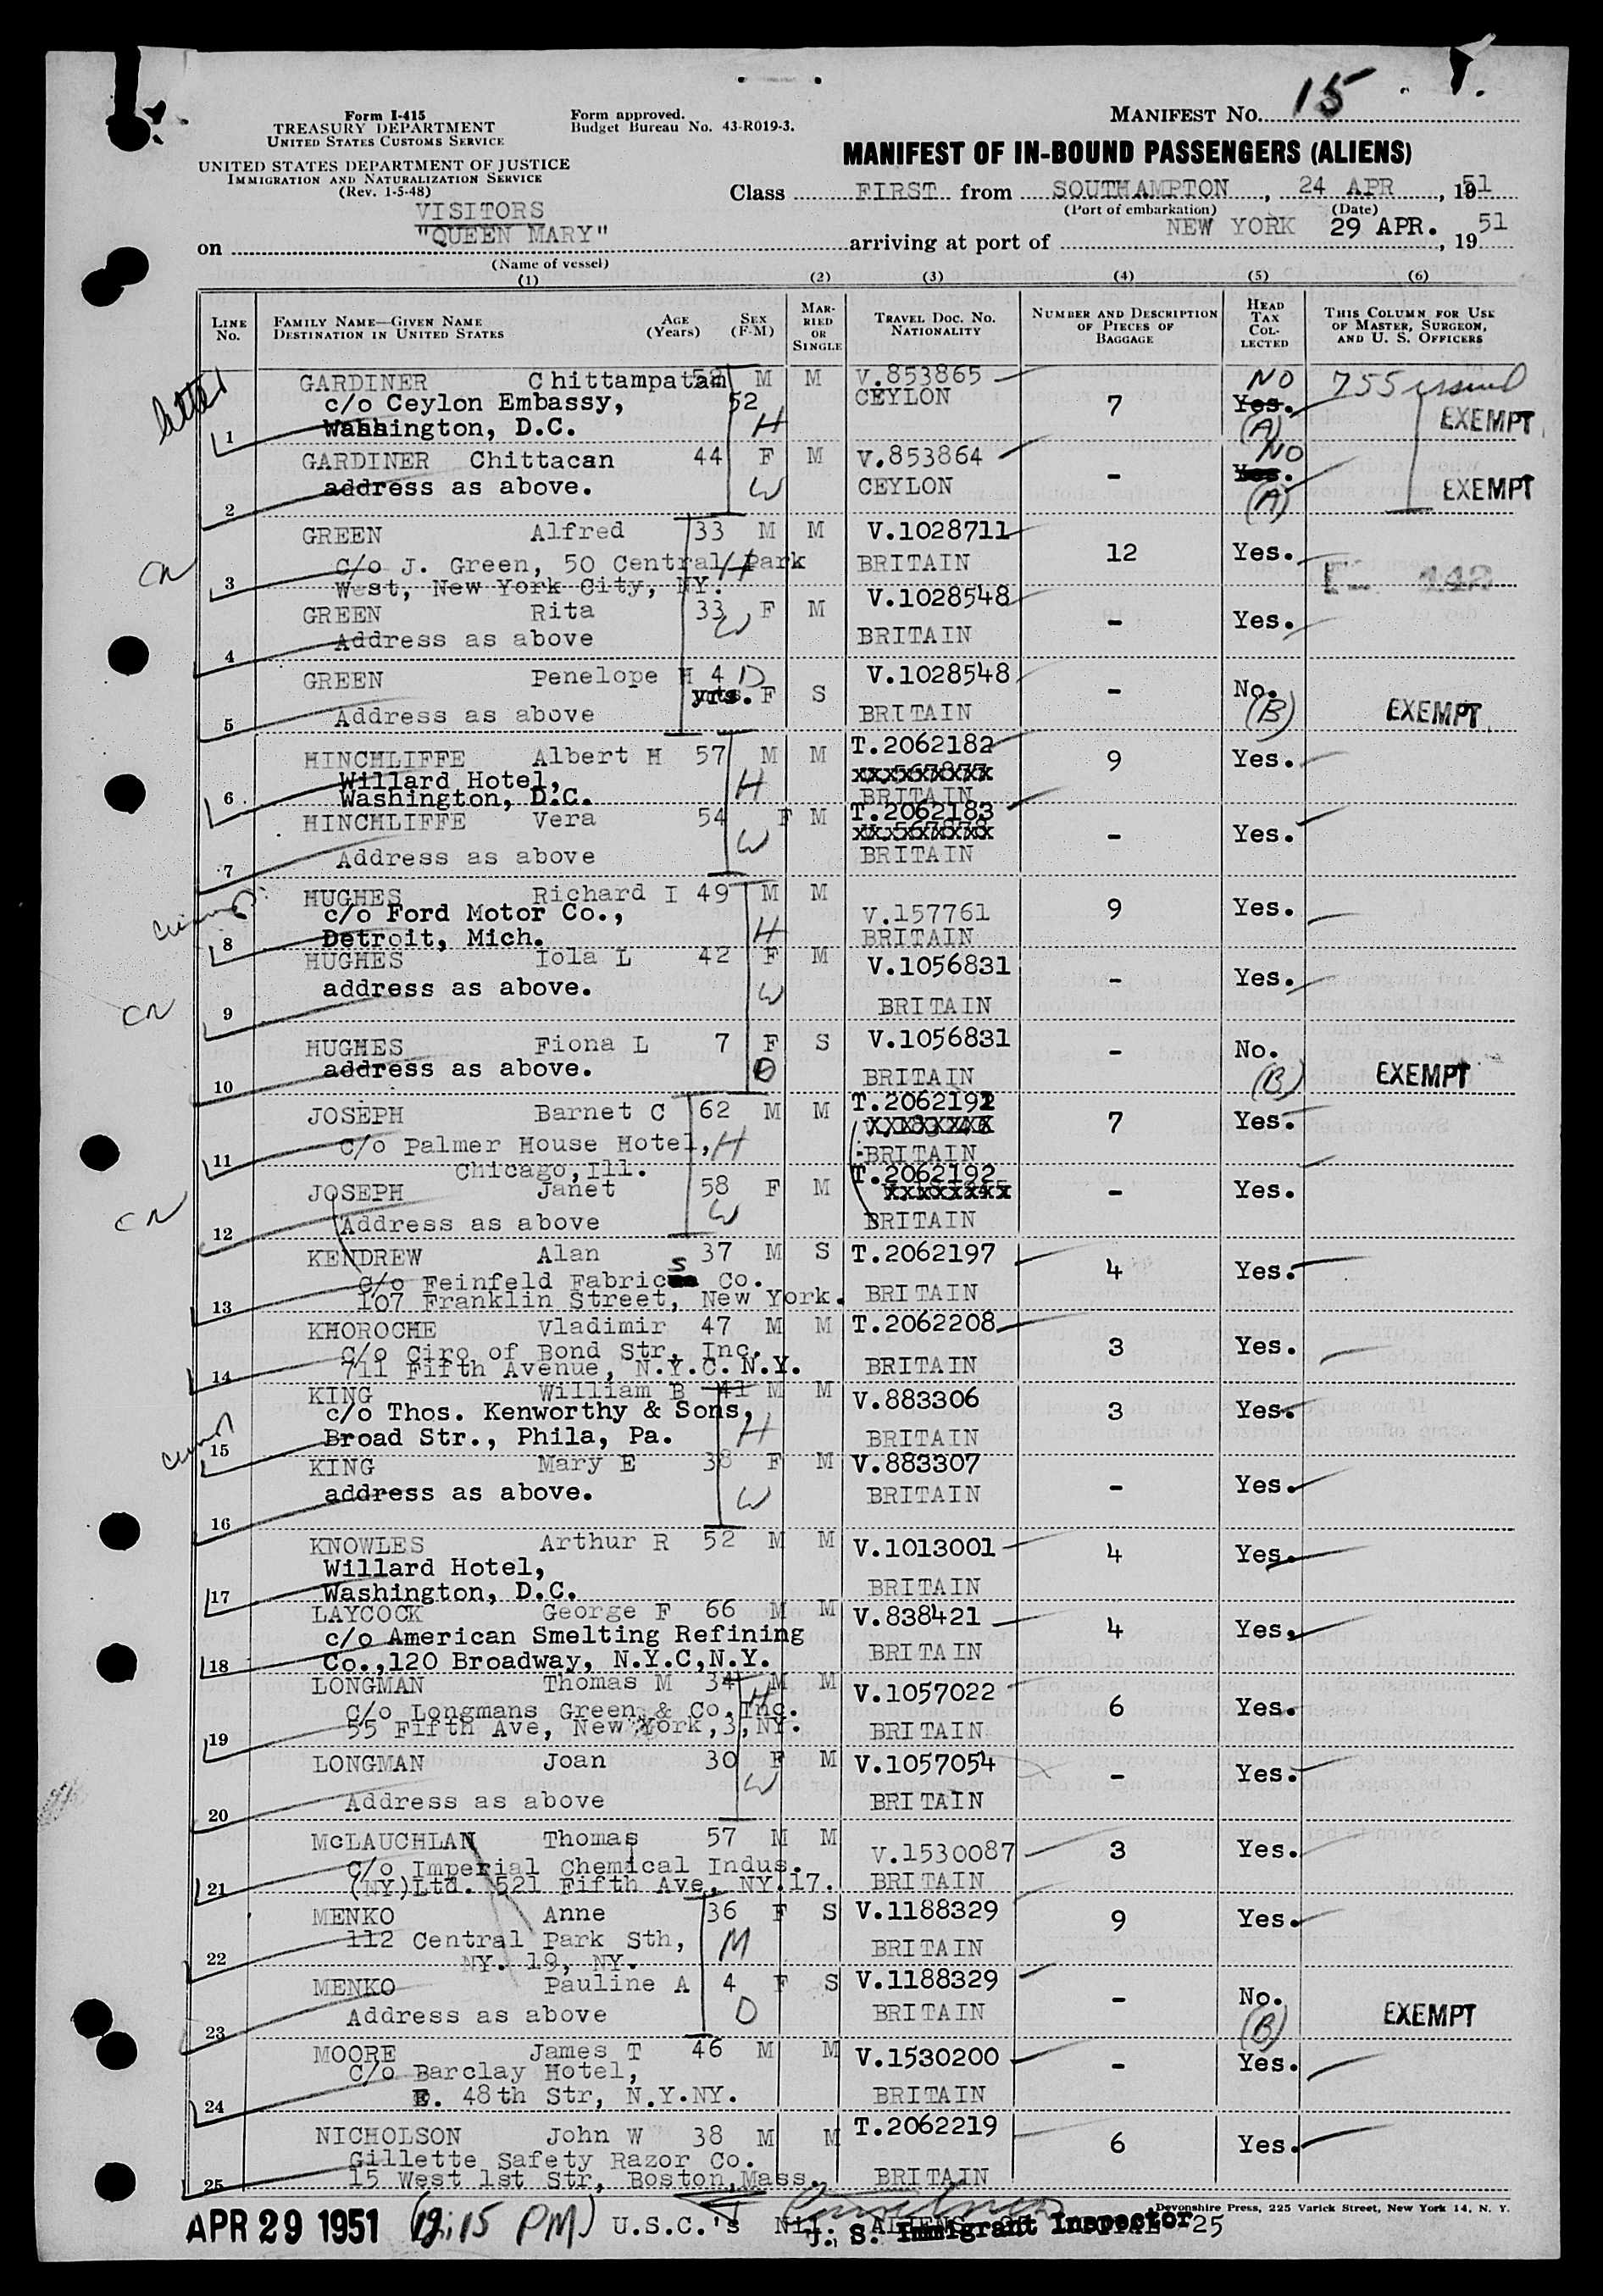 MANIFEST NO. 15
Form I-415
TREASURY DEPARTMENT
UNITED STATES CUSTOMS SERVICE
Form approved.
Budget Bureau No. 43-R019-3.
UNITED STATES DEPARTMENT OF JUSTICE
IMMIGRATION AND NATURALIZATION SERVICE
(Rev. 1-5-48)
MANIFEST OF IN-BOUND PASSENGERS (ALIENS)
Class FIRST from SOUTHAMPTON, 24 APR, 1951
(Port of embarkation) (Date)
VISITORS
on "QUEEN MARY" arriving at port of NEW YORK 29 APR., 1951
(Name of vessel)
(1) (2) (3) (4) (5) (6)
LINE No. FAMILY NAME—GIVEN NAME DESTINATION IN UNITED STATES AGE (Years) SEX (F-M) MARRIED OR SINGLE TRAVEL DOC. NO. NATIONALITY NUMBER AND DESCRIPTION OF PIECES OF BAGGAGE HEAD TAX COLLECTED THIS COLUMN FOR USE OF MASTER, SURGEON, AND U. S. OFFICERS
letter
GARDINER Chittampatam 52 M M V.853865 NO 755 issued
c/o Ceylon Embassy, 52 CEYLON 7 Yes. EXEMPT
1 Washington, D.C. H (A)
GARDINER Chittacan 44 F M V.853864 NO
address as above. W CEYLON - Yes. EXEMPT
2 (A)
GREEN Alfred 33 M M V.1028711
CN c/o J. Green, 50 Central Park H BRITAIN 12 Yes.
3 West, New York City, NY.
GREEN Rita 33 F M V.1028548 - Yes.
4 Address as above W BRITAIN
GREEN Penelope H 4 D V.1028548
yrs. F S - No.
5 Address as above BRITAIN (B) EXEMPT
HINCHLIFFE Albert H 57 M M T.2062182 9 Yes.
Willard Hotel, H
6 Washington, D.C. BRITAIN
HINCHLIFFE Vera 54 F M T.2062183 - Yes.
7 Address as above W BRITAIN
HUGHES Richard I 49 M M
c/o Ford Motor Co., V.157761 9 Yes.
8 Detroit, Mich. H BRITAIN
HUGHES Iola L 42 F M V.1056831 - Yes.
CN 9 address as above. W BRITAIN
HUGHES Fiona L 7 F S V.1056831 - No.
10 address as above. D BRITAIN (B) EXEMPT
JOSEPH Barnet C 62 M M T.2062191 7 Yes.
11 c/o Palmer House Hotel, H BRITAIN
Chicago, Ill.
JOSEPH Janet 58 F M T.2062192 - Yes.
CN 12 Address as above W BRITAIN
KENDREW Alan 37 M S T.2062197 4 Yes.
c/o Feinfeld Fabrics Co.
13 107 Franklin Street, New York. BRITAIN
KHOROCHE Vladimir 47 M M T.2062208 3 Yes.
c/o Ciro of Bond Str, Inc.
14 711 Fifth Avenue, N.Y.C. N.Y. BRITAIN
KING William B 41 M M V.883306 3 Yes.
c/o Thos. Kenworthy & Sons,
15 Broad Str., Phila, Pa. H BRITAIN
KING Mary E 38 F M V.883307 - Yes.
16 address as above. W BRITAIN
KNOWLES Arthur R 52 M M V.1013001 4 Yes.
Willard Hotel,
17 Washington, D.C. BRITAIN
LAYCOCK George F 66 M M V.838421 4 Yes.
c/o American Smelting Refining
18 Co., 120 Broadway, N.Y.C, N.Y. BRITAIN
LONGMAN Thomas M 34 M M V.1057022 6 Yes.
c/o Longmans Green & Co, Inc. H
19 55 Fifth Ave, New York, 3, NY. BRITAIN
LONGMAN Joan 30 F M V.1057054 - Yes.
20 Address as above W BRITAIN
McLAUCHLAN Thomas 57 M M V.1530087 3 Yes.
c/o Imperial Chemical Indus.
21 (NY) Ltd. 521 Fifth Ave, NY.17. BRITAIN
MENKO Anne 36 F S V.1188329 9 Yes.
22 112 Central Park Sth, M BRITAIN
NY. 19, NY.
MENKO Pauline A 4 F S V.1188329 - No.
23 Address as above D BRITAIN (B) EXEMPT
MOORE James T 46 M M V.1530200 - Yes.
c/o Barclay Hotel,
24 E. 48th Str, N.Y.NY. BRITAIN
NICHOLSON John W 38 M M T.2062219 6 Yes.
Gillette Safety Razor Co.
25 15 West 1st Str, Boston, Mass. BRITAIN
Devonshire Press, 225 Varick Street, New York 14, N. Y.
APR 29 1951 (12:15 PM) U.S.C.'s Nil. ALIENS 25
U. S. Immigrant Inspector